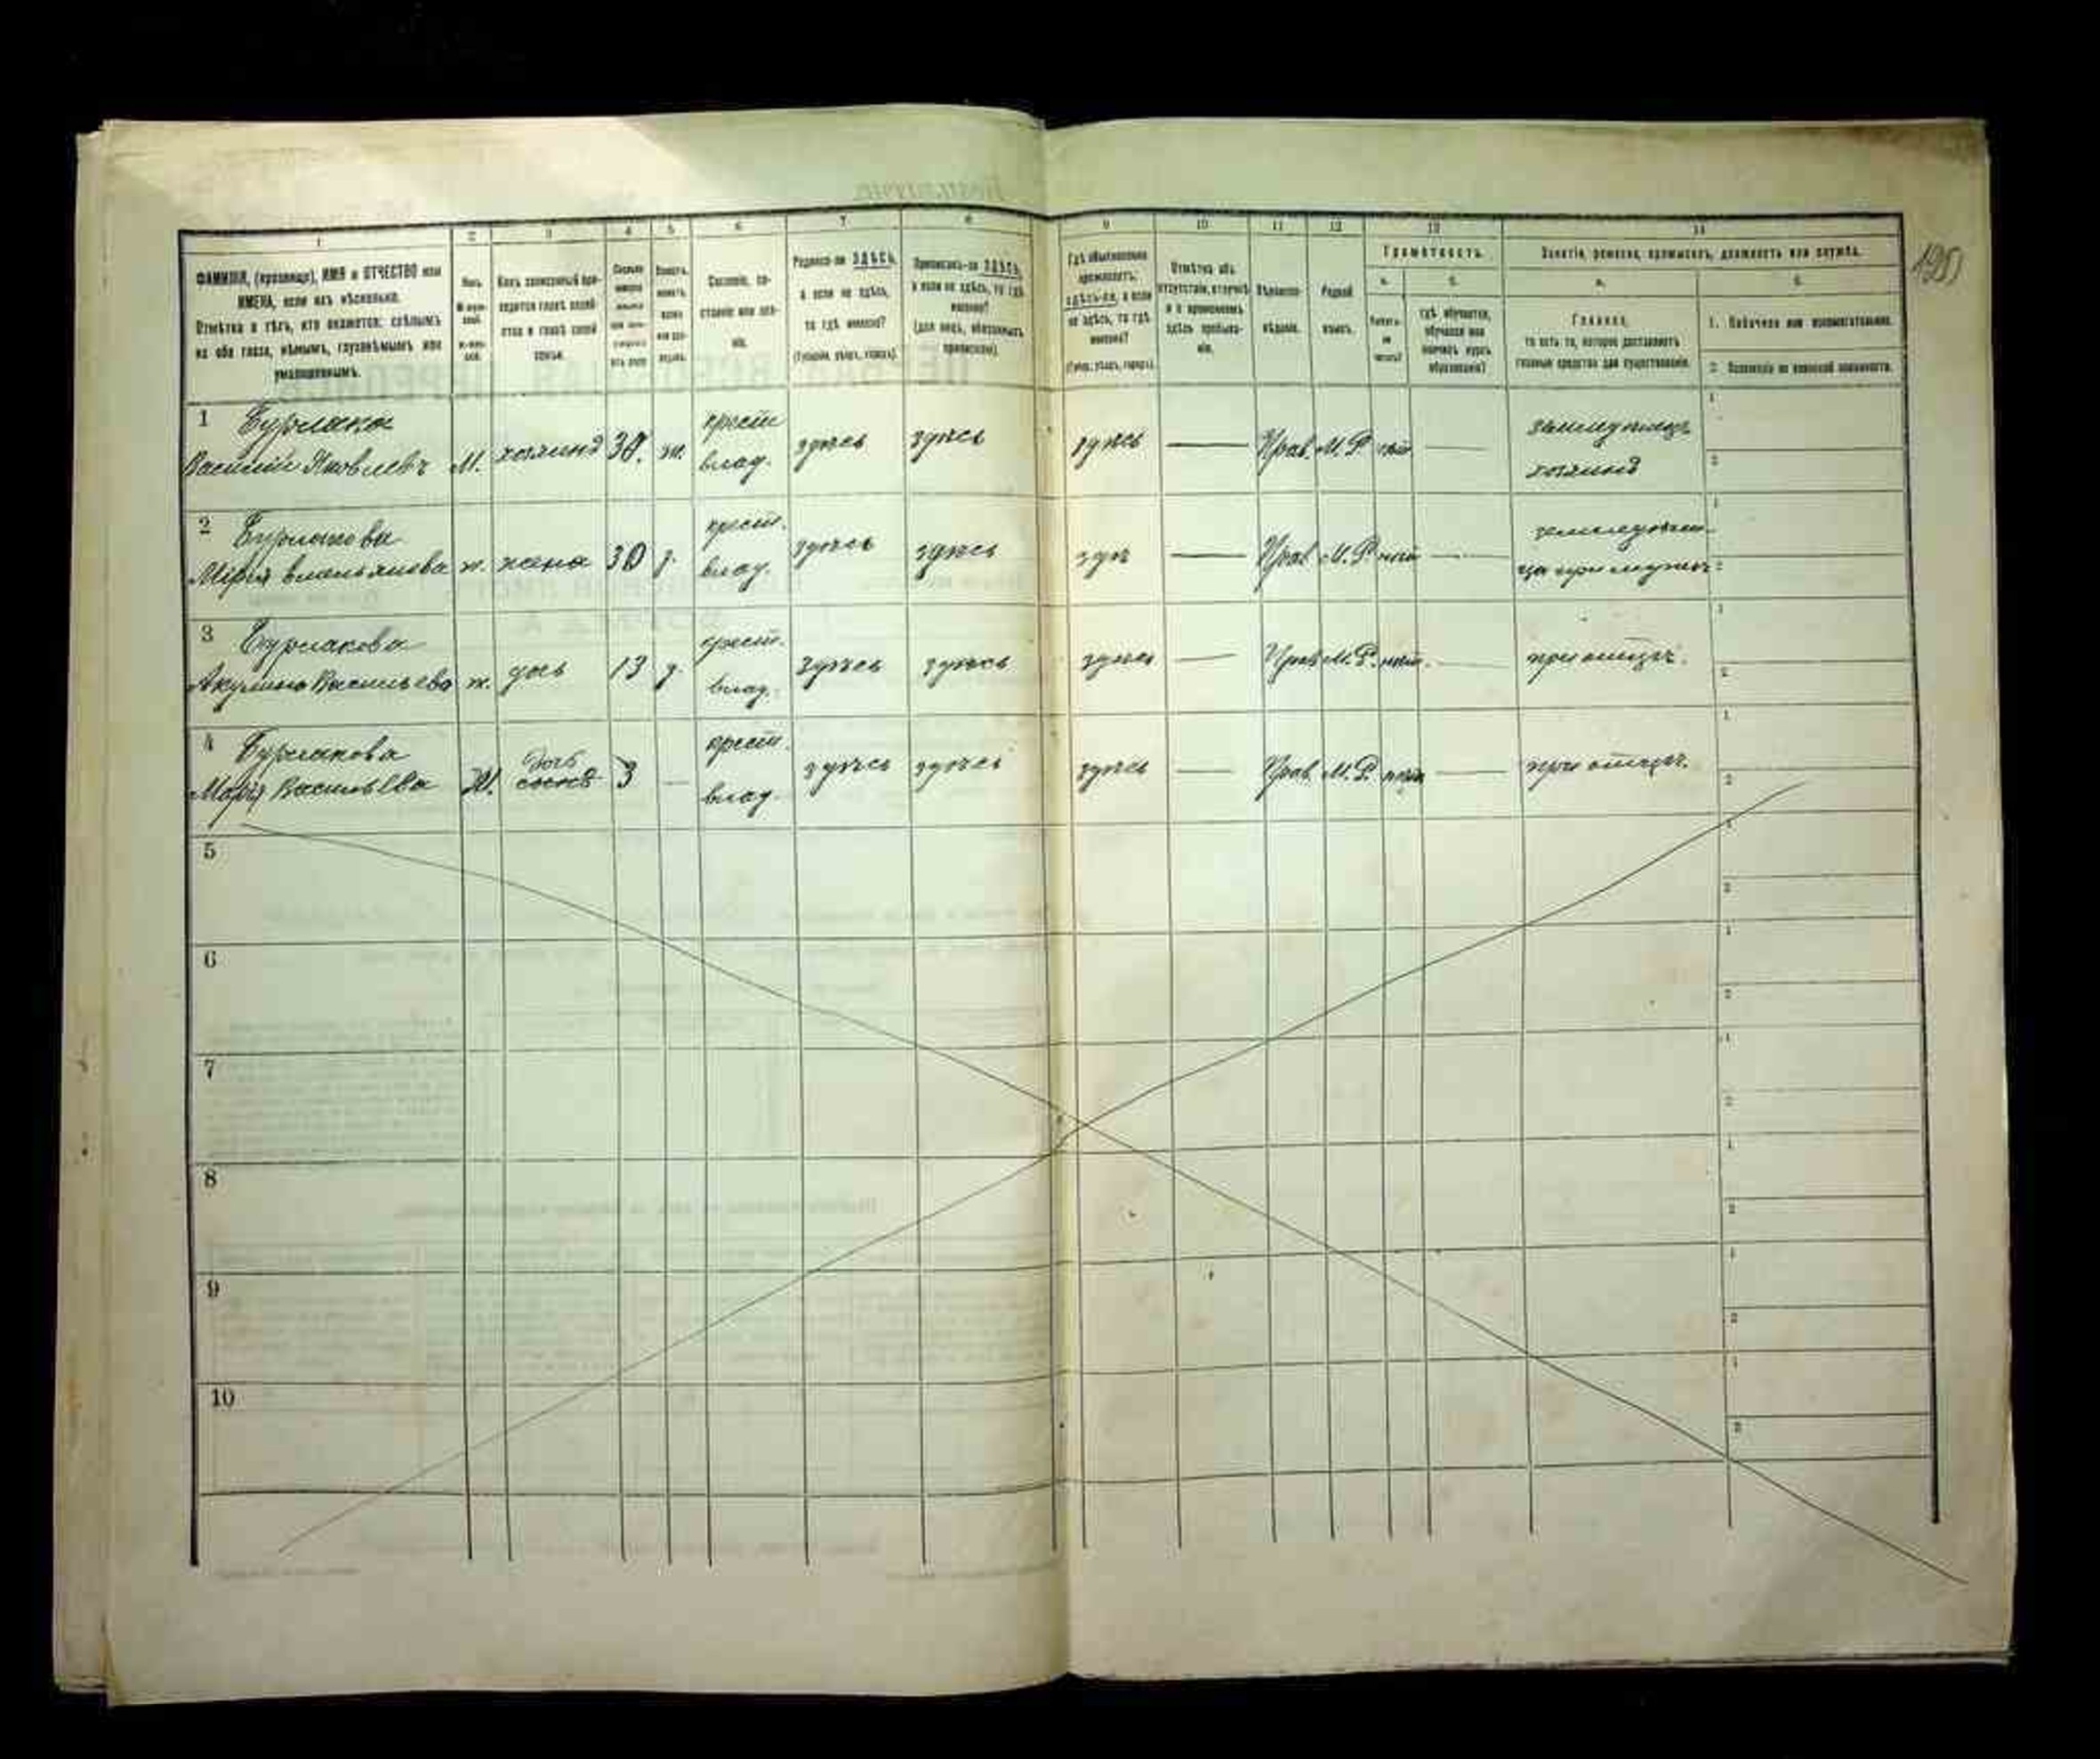 1 2 3 4 5 6 7 8 9 10 11 12 13 14
ФАМИЛІЯ, (прозвище), ИМЯ и ОТЧЕСТВО или
ИМЕНА, если ихъ нѣсколько.
Отмѣтка о тѣхъ, кто окажется: слѣпымъ
на оба глаза, нѣмымъ, глухонѣмымъ или
умалишеннымъ.
Полъ.
Какъ записанный при-
ходится главѣ хозяй-
ства и главѣ своей
семьи.
Сословіе, со-
стояніе или зва-
ніе.
Родился-ли ЗДѢСЬ,
а если не здѣсь,
то гдѣ именно?
(Губернія, уѣздъ, городъ).
Приписанъ-ли ЗДѢСЬ,
а если не здѣсь, то гдѣ
именно?
(для лицъ, обязанныхъ
припискою).
Гдѣ обыкновенно
проживаетъ:
здѣсь-ли, а если
не здѣсь, то гдѣ
именно?
(Губер., уѣздъ, городъ).
Отмѣтка объ
отсутствіи, отлучкѣ
и о временномъ
здѣсь пребыва-
ніи.
Вѣроиспо-
вѣданіе.
Родной
языкъ.
Грамотность.
а. б.
Умѣетъ-
ли
читать?
гдѣ обучается,
обучался или
кончилъ курсъ
образованія?
Занятіе, ремесло, промыселъ, должность или служба.
а. б.
Главное,
то есть то, которое доставляетъ
главныя средства для существованія.
1. Побочное или вспомогательное.
2. Положеніе по воинской повинности.
1 Бурлака
Василій Яковлевъ М. хозяинъ 38. ж. крест влад. здѣсь здѣсь здѣсь — Прав. М.Р. нѣт — земледѣлецъ хозяинъ
2 Бурлакова
Марія Емельянова ж. жена 30 з. крест. влад. здѣсь здѣсь здѣс — Прав М.Р. нѣт — земледѣли-
ца при мужѣ
3 Бурлакова
Акулина Васильева ж. дочь 13 д. крест. влад. здѣсь здѣсь здѣсь — Прав М.Р. нѣт. — при отцѣ.
4 Бурлакова
Марія Васильева Ж. дочь 3 — крест. влад. здѣсь здѣсь здѣсь — Прав. М.Р. нѣт — при отцѣ.
5
6
7
8
9
10